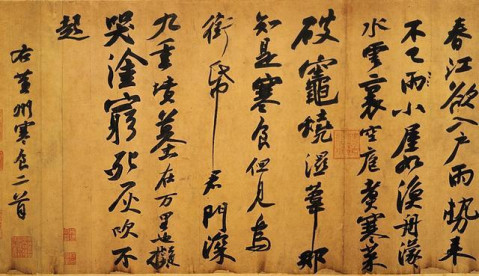 春江欲入户雨勢來
不已雨小屋如漁舟濛〻
水雲裏空庖煮寒菜
破竈燒濕葦那
知是寒食但見烏
銜帋君門深
九重墳墓在万里也擬
哭塗窮死灰吹不
起
右黄州寒食二首